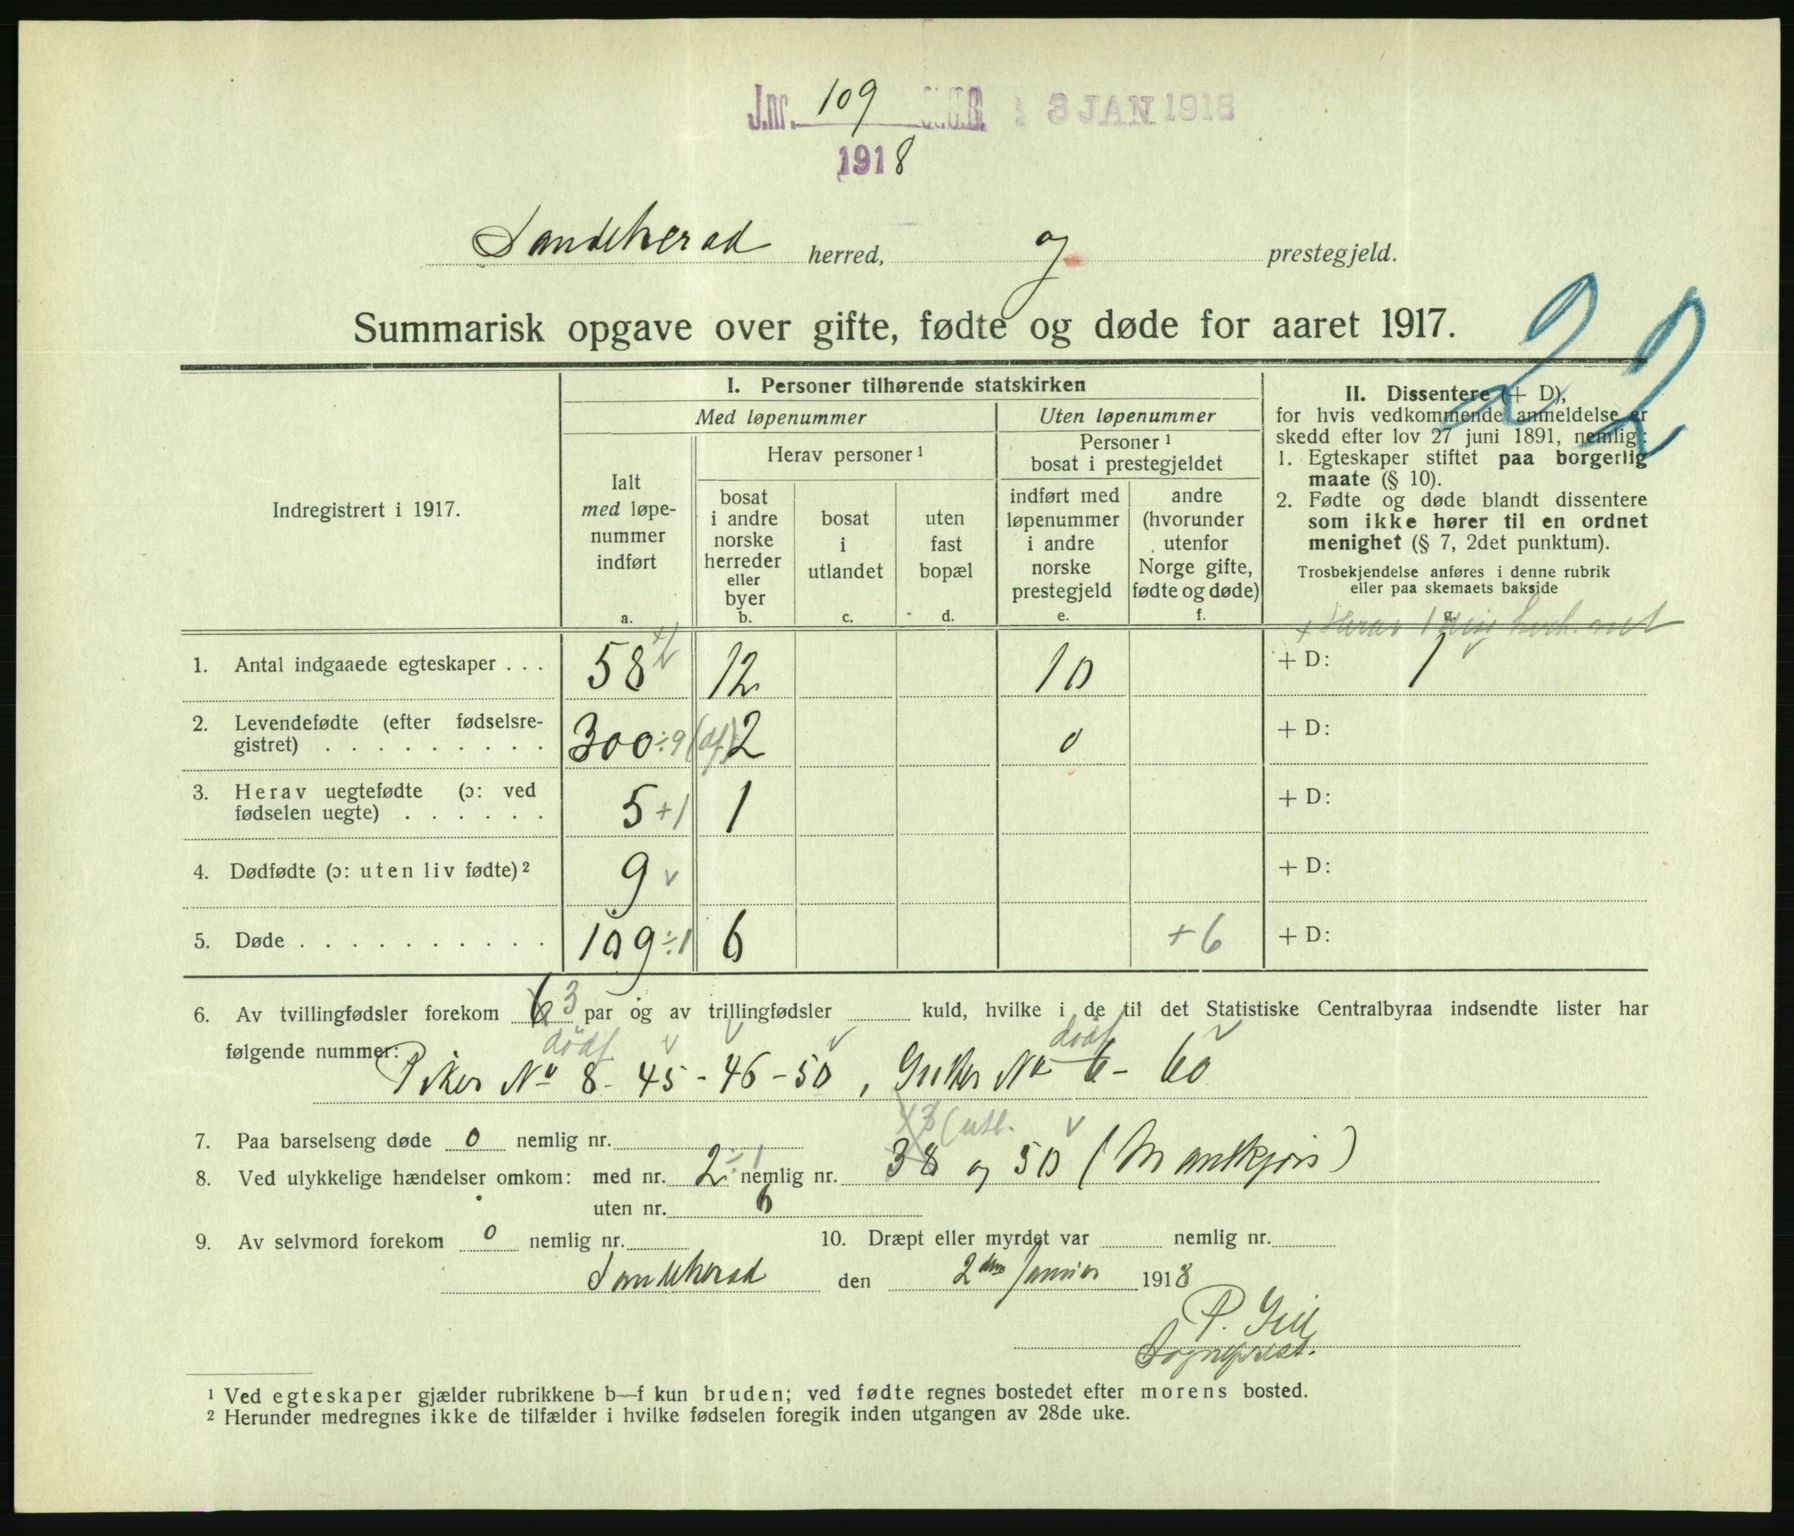 J.nr. 109 S.C.B. 3 JAN 1918
1918
Sandeherad herred, og prestegjeld.
Summarisk opgave over gifte, fødte og døde for aaret 1917.
22
Indregistrert i 1917.
I. Personer tilhørende statskirken
Med løpenummer
Uten løpenummer
Ialt
med løpe-
nummer
indført
a.
Herav personer ¹
bosat
i andre
norske
herreder
eller
byer
b.
bosat
i
utlandet
c.
uten
fast
bopæl
d.
Personer ¹
bosat i prestegjeldet
indført med
løpenummer
i andre
norske
prestegjeld
e.
andre
(hvorunder
utenfor
Norge gifte,
fødte og døde)
f.
II. Dissentere (+ D),
for hvis vedkommende anmeldelse er
skedd efter lov 27 juni 1891, nemlig:
1. Egteskaper stiftet paa borgerlig
maate (§ 10).
2. Fødte og døde blandt dissentere
som ikke hører til en ordnet
menighet (§ 7, 2det punktum).
Trosbekjendelse anføres i denne rubrik
eller paa skemaets bakside
g.
1. Antal indgaaede egteskaper . . . 58 12 10 + D: 1
2. Levendefødte (efter fødselsre-
gistret) . . . . . . . . . 300 ÷9 (df) 2 0 + D:
3. Herav uegtefødte (ɔ: ved
fødselen uegte) . . . . . . 5 +1 1 + D:
4. Dødfødte (ɔ: uten liv fødte) ² 9 v + D:
5. Døde . . . . . . . . . . 109 ÷1 6 +6 + D:
6. Av tvillingfødsler forekom 6 3 par og av trillingfødsler kuld, hvilke i de til det Statistiske Centralbyraa indsendte lister har
dödf. dödf
følgende nummer: Piker No 8 - 45 - 46 - 50, Gutter No 6 - 60
7. Paa barselseng døde 0 nemlig nr.
8. Ved ulykkelige hændelser omkom: med nr. 2 ÷1 nemlig nr. 38 og 50 (Mandkjøn)
uten nr. 6
9. Av selvmord forekom 0 nemlig nr. 10. Dræpt eller myrdet var nemlig nr.
Sandeherad den 2den Januar 1918
P. Gill
Sogneprest.
¹ Ved egteskaper gjælder rubrikkene b—f kun bruden; ved fødte regnes bostedet efter morens bosted.
² Herunder medregnes ikke de tilfælder i hvilke fødselen foregik inden utgangen av 28de uke.